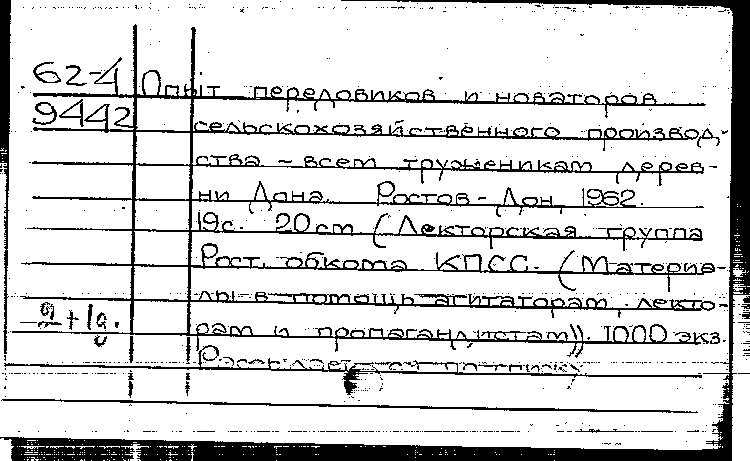 62-4 Опыт передовиков и новаторов
9442 сельскохозяйственного производ-
ства - всем труженикам дерев-
ни Дона. Ростов-Дон, 1962.
19с. 20 cm (Лекторская группа
Рост. обкома КПСС. (Материа-
лы в помощь агитаторам, лекто-
2+1g. рам и пропагандистам)). 1000 экз.
Рассылает. ся по списку